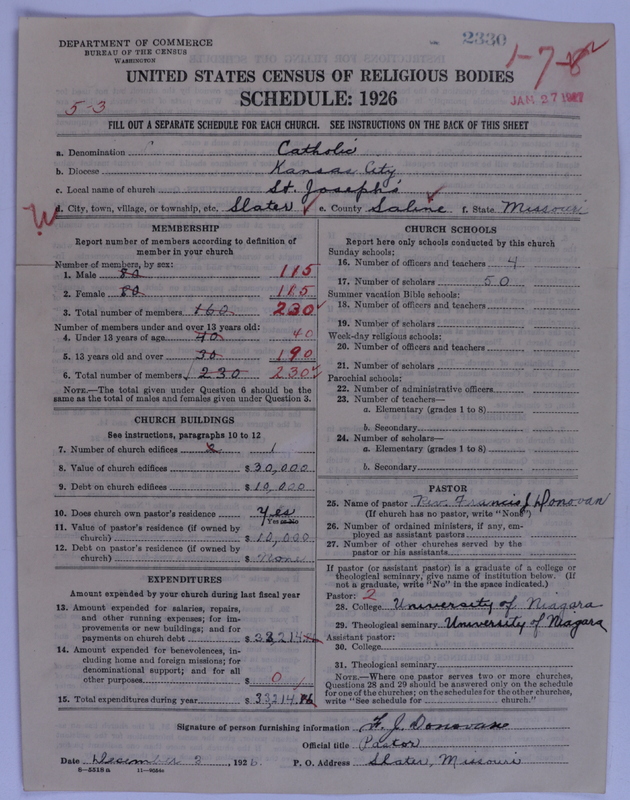 DEPARTMENT OF COMMERCE
BUREAU OF THE CENSUS
WASHINGTON
2330
1-7-8
JAN 27 1927
UNITED STATES CENSUS OF RELIGIOUS BODIES
SCHEDULE: 1926
5-3
FILL OUT A SEPARATE SCHEDULE FOR EACH CHURCH. SEE INSTRUCTIONS ON THE BACK OF THIS SHEET
a. Denomination Catholic
b. Diocese Kansas City
c. Local name of church St. Joseph's
d. City, town, village, or township, etc. Slater e. County Saline f. State Missouri
MEMBERSHIP
Report number of members according to definition of
member in your church
Number of members, by sex:
1. Male 80 115
2. Female 80 115
3. Total number of members 160 230
Number of members under and over 13 years old:
4. Under 13 years of age 40 40
5. 13 years old and over 30 190
6. Total number of members 230 230
NOTE.—The total given under Question 6 should be the
same as the total of males and females given under Question 3.
CHURCH BUILDINGS
See instructions, paragraphs 10 to 12
7. Number of church edifices 1
8. Value of church edifices $ 30,000
9. Debt on church edifices $ 10,000
10. Does church own pastor's residence yes
Yes or No
11. Value of pastor's residence (if owned by
church) $ 10,000
12. Debt on pastor's residence (if owned by
church) $ None
EXPENDITURES
Amount expended by your church during last fiscal year
13. Amount expended for salaries, repairs,
and other running expenses; for im-
provements or new buildings; and for
payments on church debt $
14. Amount expended for benevolences, in-
cluding home and foreign missions; for
denominational support; and for all
other purposes $ 0
15. Total expenditures during year $ 33,214
CHURCH SCHOOLS
Report here only schools conducted by this church
Sunday schools:
16. Number of officers and teachers 4
17. Number of scholars 50
Summer vacation Bible schools:
18. Number of officers and teachers
19. Number of scholars
Week-day religious schools:
20. Number of officers and teachers
21. Number of scholars
Parochial schools:
22. Number of administrative officers
23. Number of teachers—
a. Elementary (grades 1 to 8)
b. Secondary
24. Number of scholars—
a. Elementary (grades 1 to 8)
b. Secondary
PASTOR
25. Name of pastor Rev. Francis J Donovan
(If church has no pastor, write "None")
26. Number of ordained ministers, if any, em-
ployed as assistant pastors
27. Number of other churches served by the
pastor or his assistants
If pastor (or assistant pastor) is a graduate of a college or
theological seminary, give name of institution below. (If
not a graduate, write "No" in the space indicated.)
Pastor: 2
28. College University of Niagara
29. Theological seminary University of Niagara
Assistant pastor:
30. College
31. Theological seminary
NOTE.—Where one pastor serves two or more churches,
Questions 28 and 29 should be answered only on the schedule
for one of the churches; on the schedules for the other churches,
write "See schedule for church."
Signature of person furnishing information F. J. Donovan
Official title Pastor
Date December 3, 1926 P. O. Address Slater, Missouri
8—5518 a 11—9064